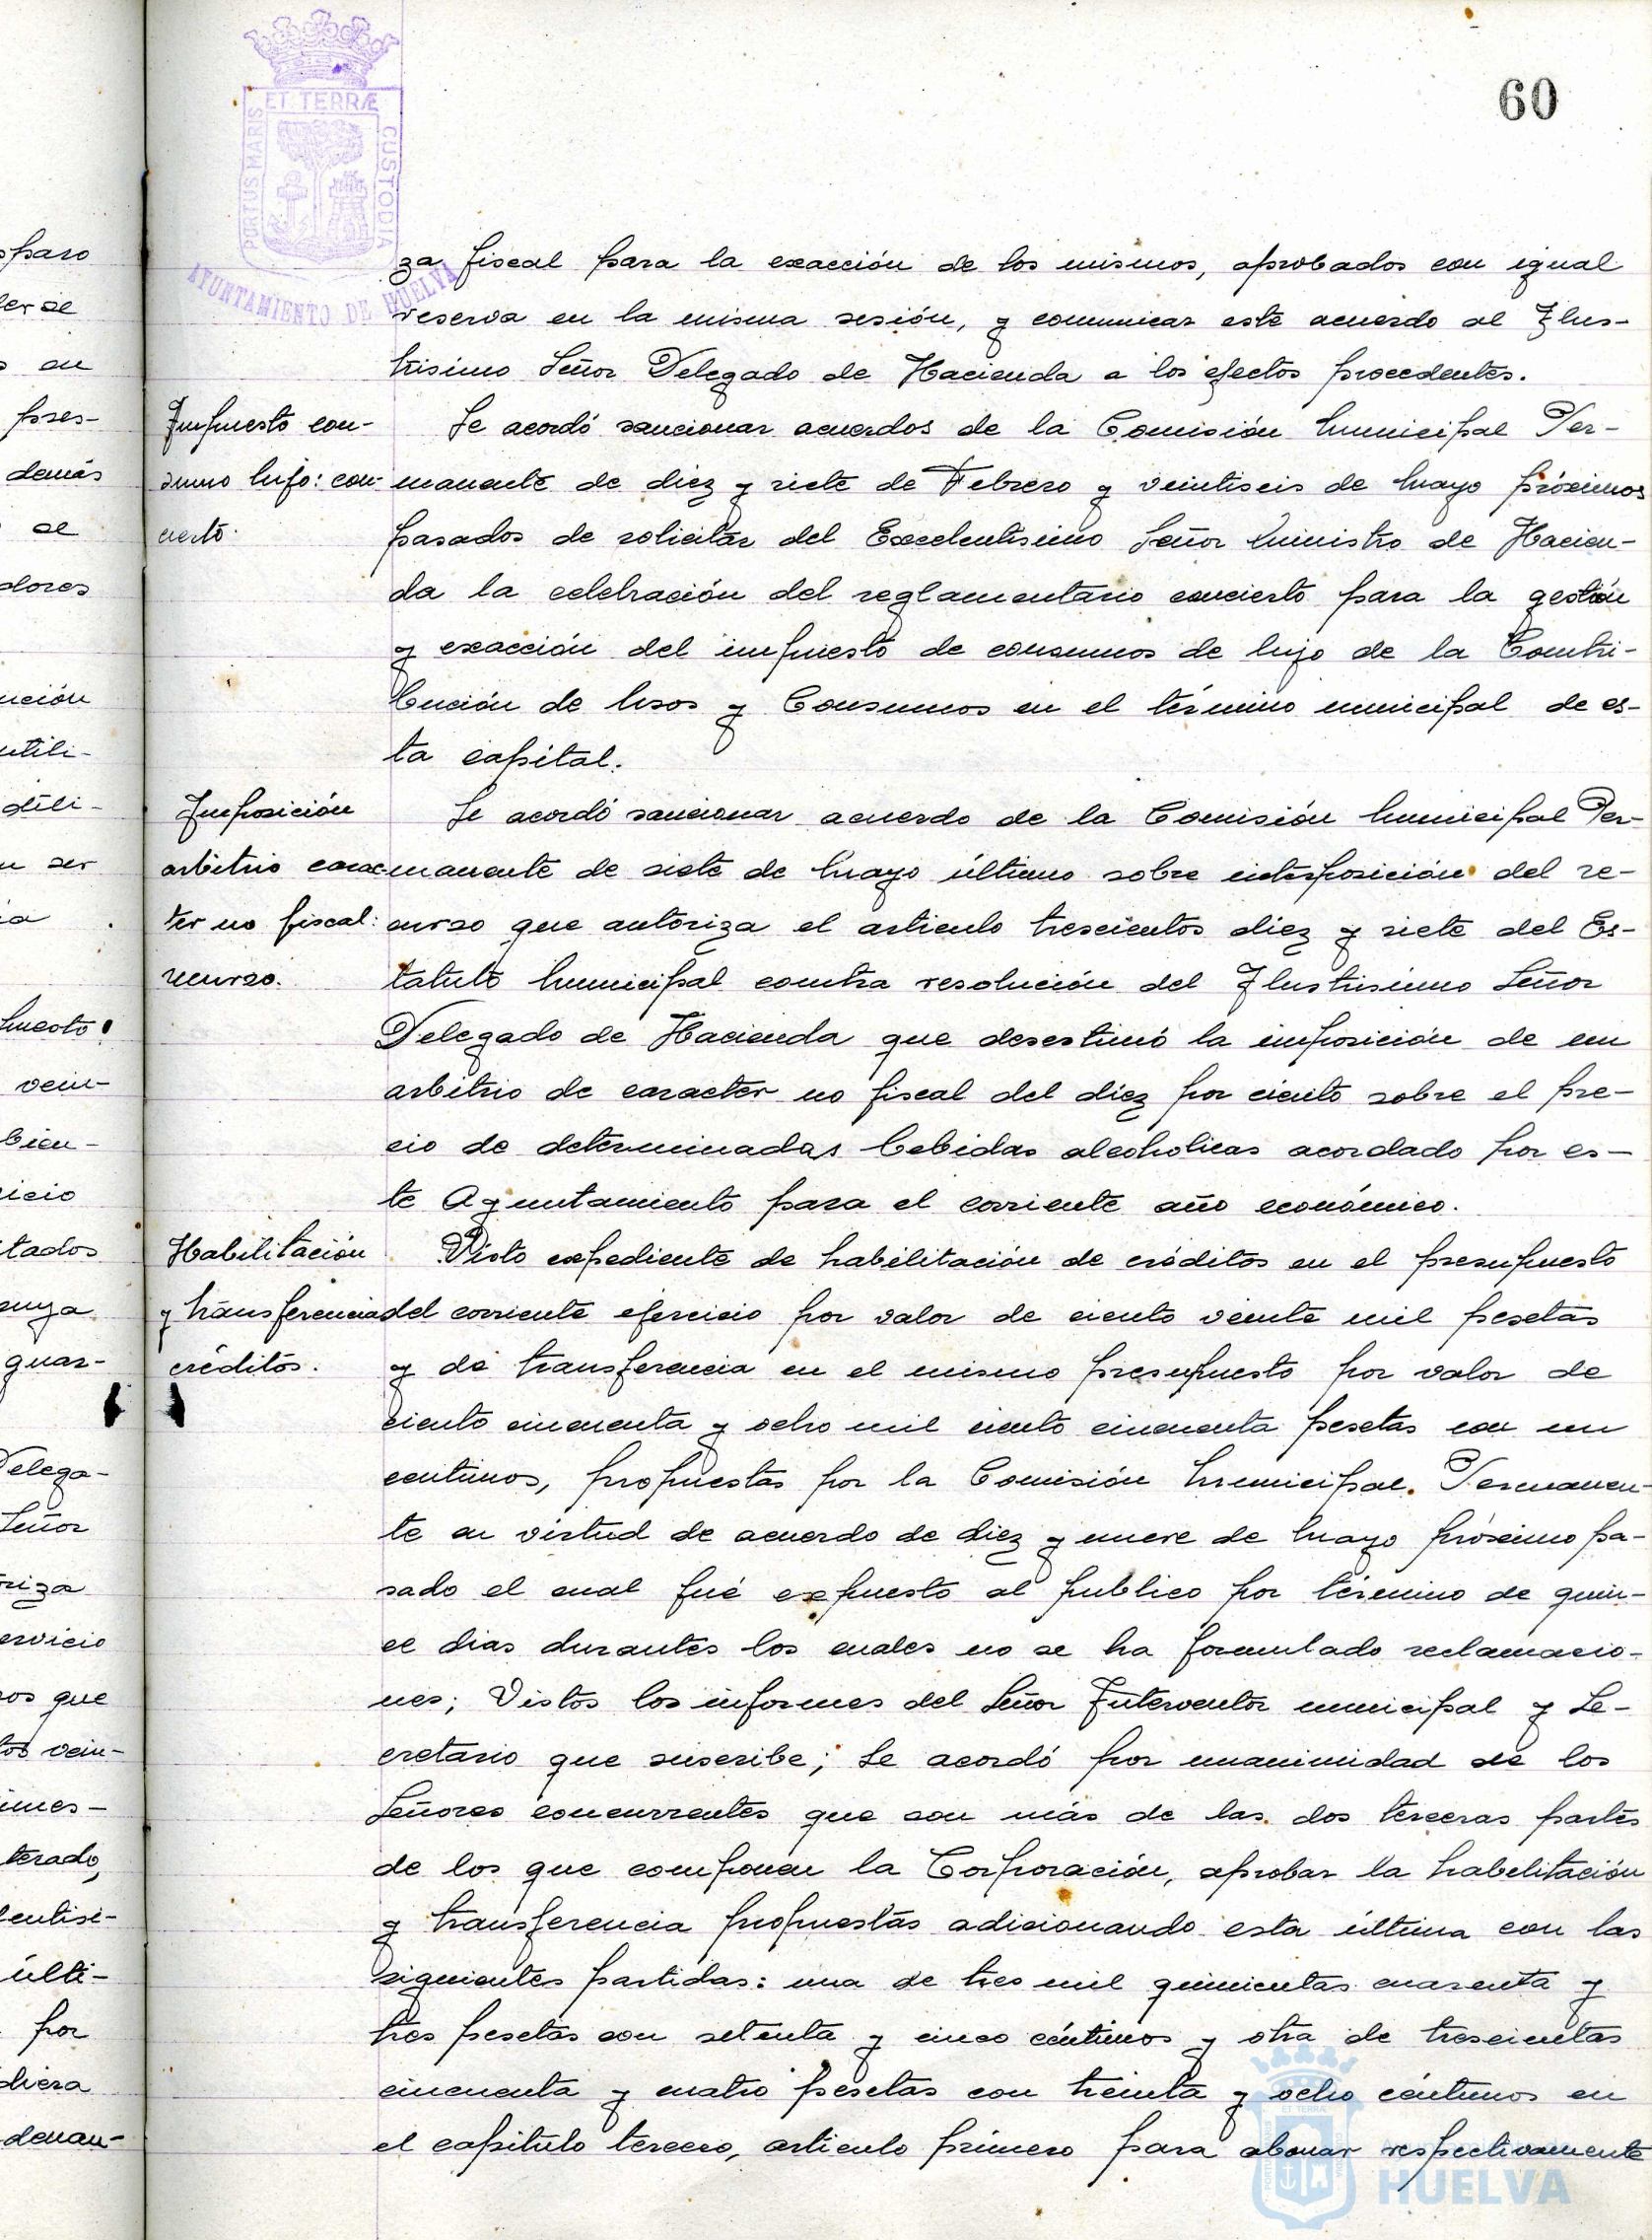 60
ET TERRÆ
PORTUS MARIS
CUSTODIA
AYUNTAMIENTO DE HUELVA
za fiscal para la exacción de los mismos, aprobados con igual
reserva en la misma sesión, y comunicar este acuerdo al Ilus-
trisimo Señor Delegado de Hacienda a los efectos procedentes.
Impuesto con-
sumo lujo: con-
cierto.
Se acordó sancionar acuerdos de la Comisión Municipal Per-
manente de diez y siete de Febrero y veintiseis de Mayo próximos
pasados de solicitar del Excelentisimo Señor Ministro de Hacien-
da la celebración del reglamentario concierto para la gestión
y exacción del impuesto de consumos de lujo de la Contri-
bución de Usos y Consumos en el término municipal de es-
ta capital.
Imposición
arbitrio carac-
ter no fiscal:
recurso.
Se acordó sancionar acuerdo de la Comisión Municipal Per-
manente de siete de Mayo último sobre interposición del re-
curso que autoriza el articulo trescientos diez y siete del Es-
tatuto Municipal contra resolución del Ilustrisimo Señor
Delegado de Hacienda que desestimó la imposición de un
arbitrio de caracter no fiscal del diez por ciento sobre el pre-
cio de determinadas bebidas alcoholicas acordado por es-
te Ayuntamiento para el corriente año económico.
Habilitación
y transferencia
créditos.
Visto expediente de habilitación de créditos en el presupuesto
del corriente ejercicio por valor de ciento veinte mil pesetas
y de transferencia en el mismo presupuesto por valor de
ciento cincuenta y ocho mil ciento cincuenta pesetas con un
centimos, propuestas por la Comisión Municipal Permanen-
te en virtud de acuerdo de diez y nueve de Mayo próximo pa-
sado el cual fué expuesto al publico por término de quin-
ce dias durantes los cuales no se ha formulado reclamacio-
nes; Vistos los informes del Señor Interventor municipal y Se-
cretario que suscribe; Se acordó por unanimidad de los
Señores concurrentes que son más de las dos terceras partes
de los que componen la Corporación, aprobar la habilitación
y transferencia propuestas adicionando esta última con las
siguientes partidas: una de tres mil quinientas cuarenta y
tres pesetas con setenta y cinco céntimos y otra de trescientas
cincuenta y cuatro pesetas con treinta y ocho céntimos en
el capitulo tercero, articulo primero para abonar respectivamente
HUELVA